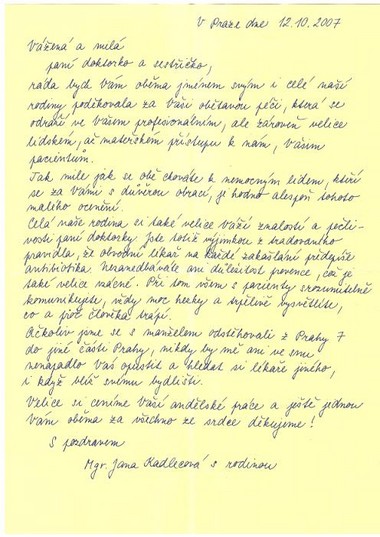 V Praze dne 12.10.2007
Vážená a milá
paní doktorko a sestřičko,
ráda bych Vám oběma jménem svým i celé naší
rodiny poděkovala za Vaši obětavou péči, která se
odráží ve Vašem profesionálním, ale zároveň velice
lidském, až mateřském přístupu k nám, Vašim
pacientům.
Tak milé jak se obě chováte k nemocným lidem, kteří
se za Vámi s důvěrou obrací, je hodno alespoň tohoto
malého ocenění.
Celá naše rodina si také velice váží znalostí a pečli-
vosti paní doktorky. Jste totiž výjimkou z tradovaného
pravidla, že obvodní lékař na každé zakašlání předepíše
antibiotika. Nezanedbáváte ani důležitost prevence, což je
také velice vzácné. Při tom všem s pacienty srozumitelně
komunikujete, vždy moc hezky a trpělivě vysvětlíte,
co a proč člověka trápí.
Ačkoliv jsme se s manželem odstěhovali z Prahy 7
do jiné části Prahy, nikdy by mě ani ve snu
nenapadlo Vás opustit a hledat si lékaře jiného,
i když blíž svému bydlišti.
Velice si ceníme Vaší andělské práce a ještě jednou
Vám oběma za všechno ze srdce děkujeme!
S pozdravem
Mgr. Jana Kadlecová s rodinou